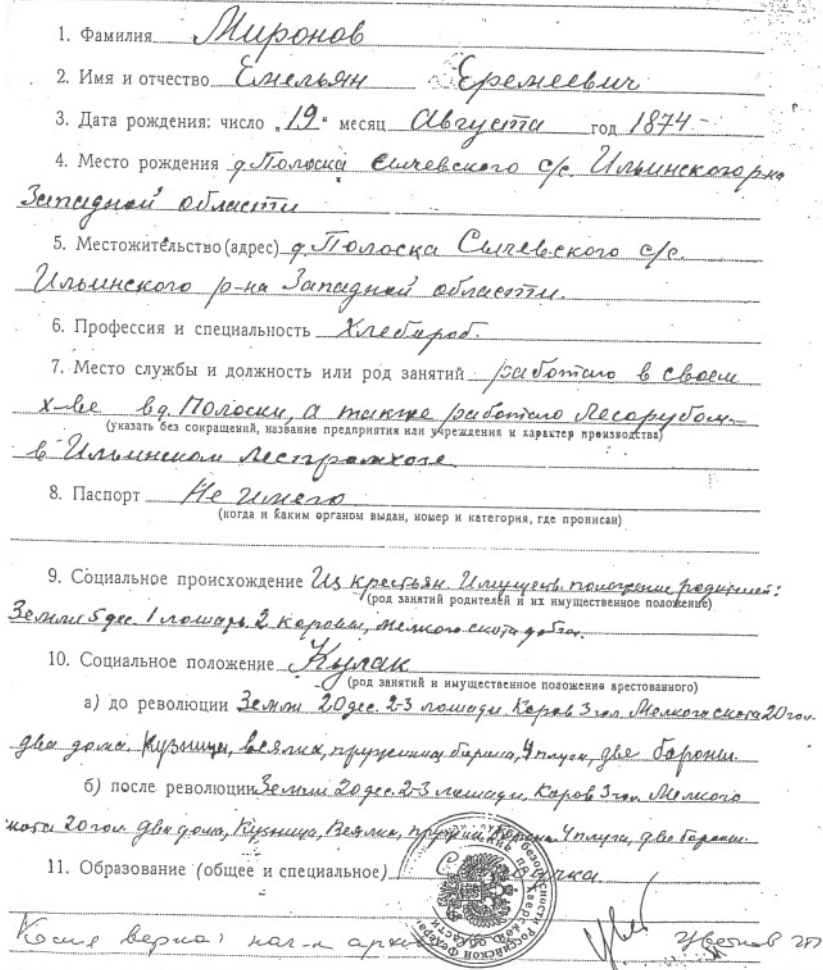 1. Фамилия Миронов
2. Имя и отчество Емельян Еремеевич
3. Дата рождения: число „19“ месяц Августа год 1874 -
4. Место рождения д. Полоска Сычевского с/с. Ильинского р-на
Западной области
5. Местожительство (адрес) д. Полоска Сычевского с/с.
Ильинского р-на Западной области.
6. Профессия и специальность Хлебороб.
7. Место службы и должность или род занятий работаю в своем
х-ве в д. Полоски, а также работаю лесорубом
(указать без сокращений, название предприятия или учреждения и характер производства)
в Ильинском леспромхозе
8. Паспорт Не имею
(когда и каким органом выдан, номер и категория, где прописан)
9. Социальное происхождение Из крестьян. Имуществ. положение родителей:
(род занятий родителей и их имущественное положение)
Земли 5 дес. 1 лошадь. 2 коровы, мелкого скота
10. Социальное положение Кулак
(род занятий и имущественное положение арестованного)
а) до революции Земли 20 дес. 2-3 лошади. Коров 3 гол. Мелкого скота 20 гол.
два дома, кузница, веялка, пружинная борона, 4 плуга, две бороны.
б) после революции Земли 20 дес. 2-3 лошади, Коров 3 гол. Мелкого
скота 20 гол. два дома, Кузница, Веялка, 4 плуга, две бороны.
11. Образование (общее и специальное)
безопасности Российской Федерации
Тверской области
Копия верна: нач-к
Цветков